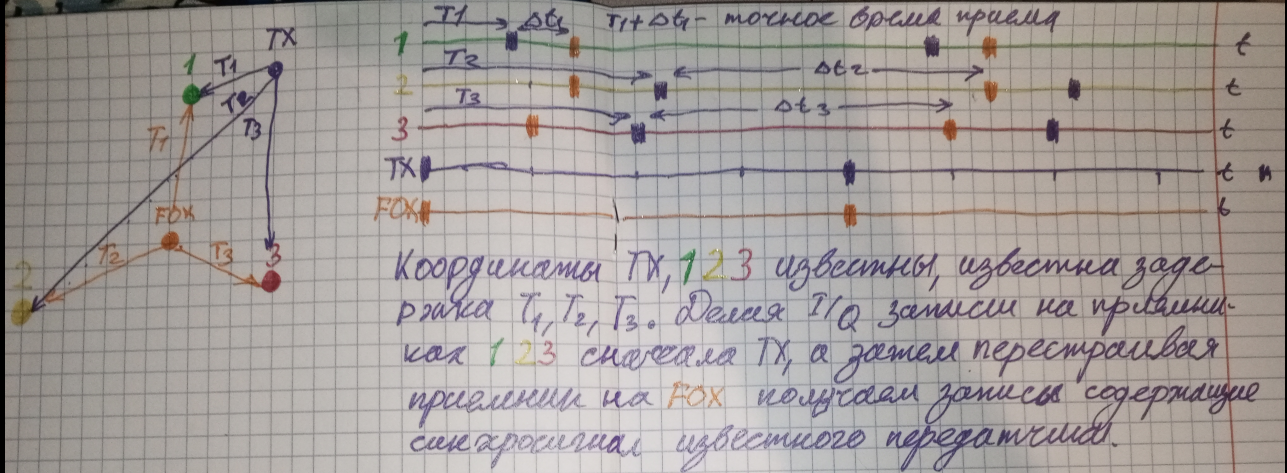 TX
1
T1
T2
T3
T1
FOX
T2
T3
3
2
T1 Δt1 T1+Δt1 - точное время приема
1 t
T2 Δt2
2 t
T3 Δt3
3 t
TX t н
FOX t
Координаты TX, 1 2 3 известны, известна заде-
ржка T1, T2, T3. Делая I/Q записи на приемни-
ках 1 2 3 сначала TX, а затем перестраивая
приемник на FOX получаем записи содержащие
синхросигнал известного передатчика.